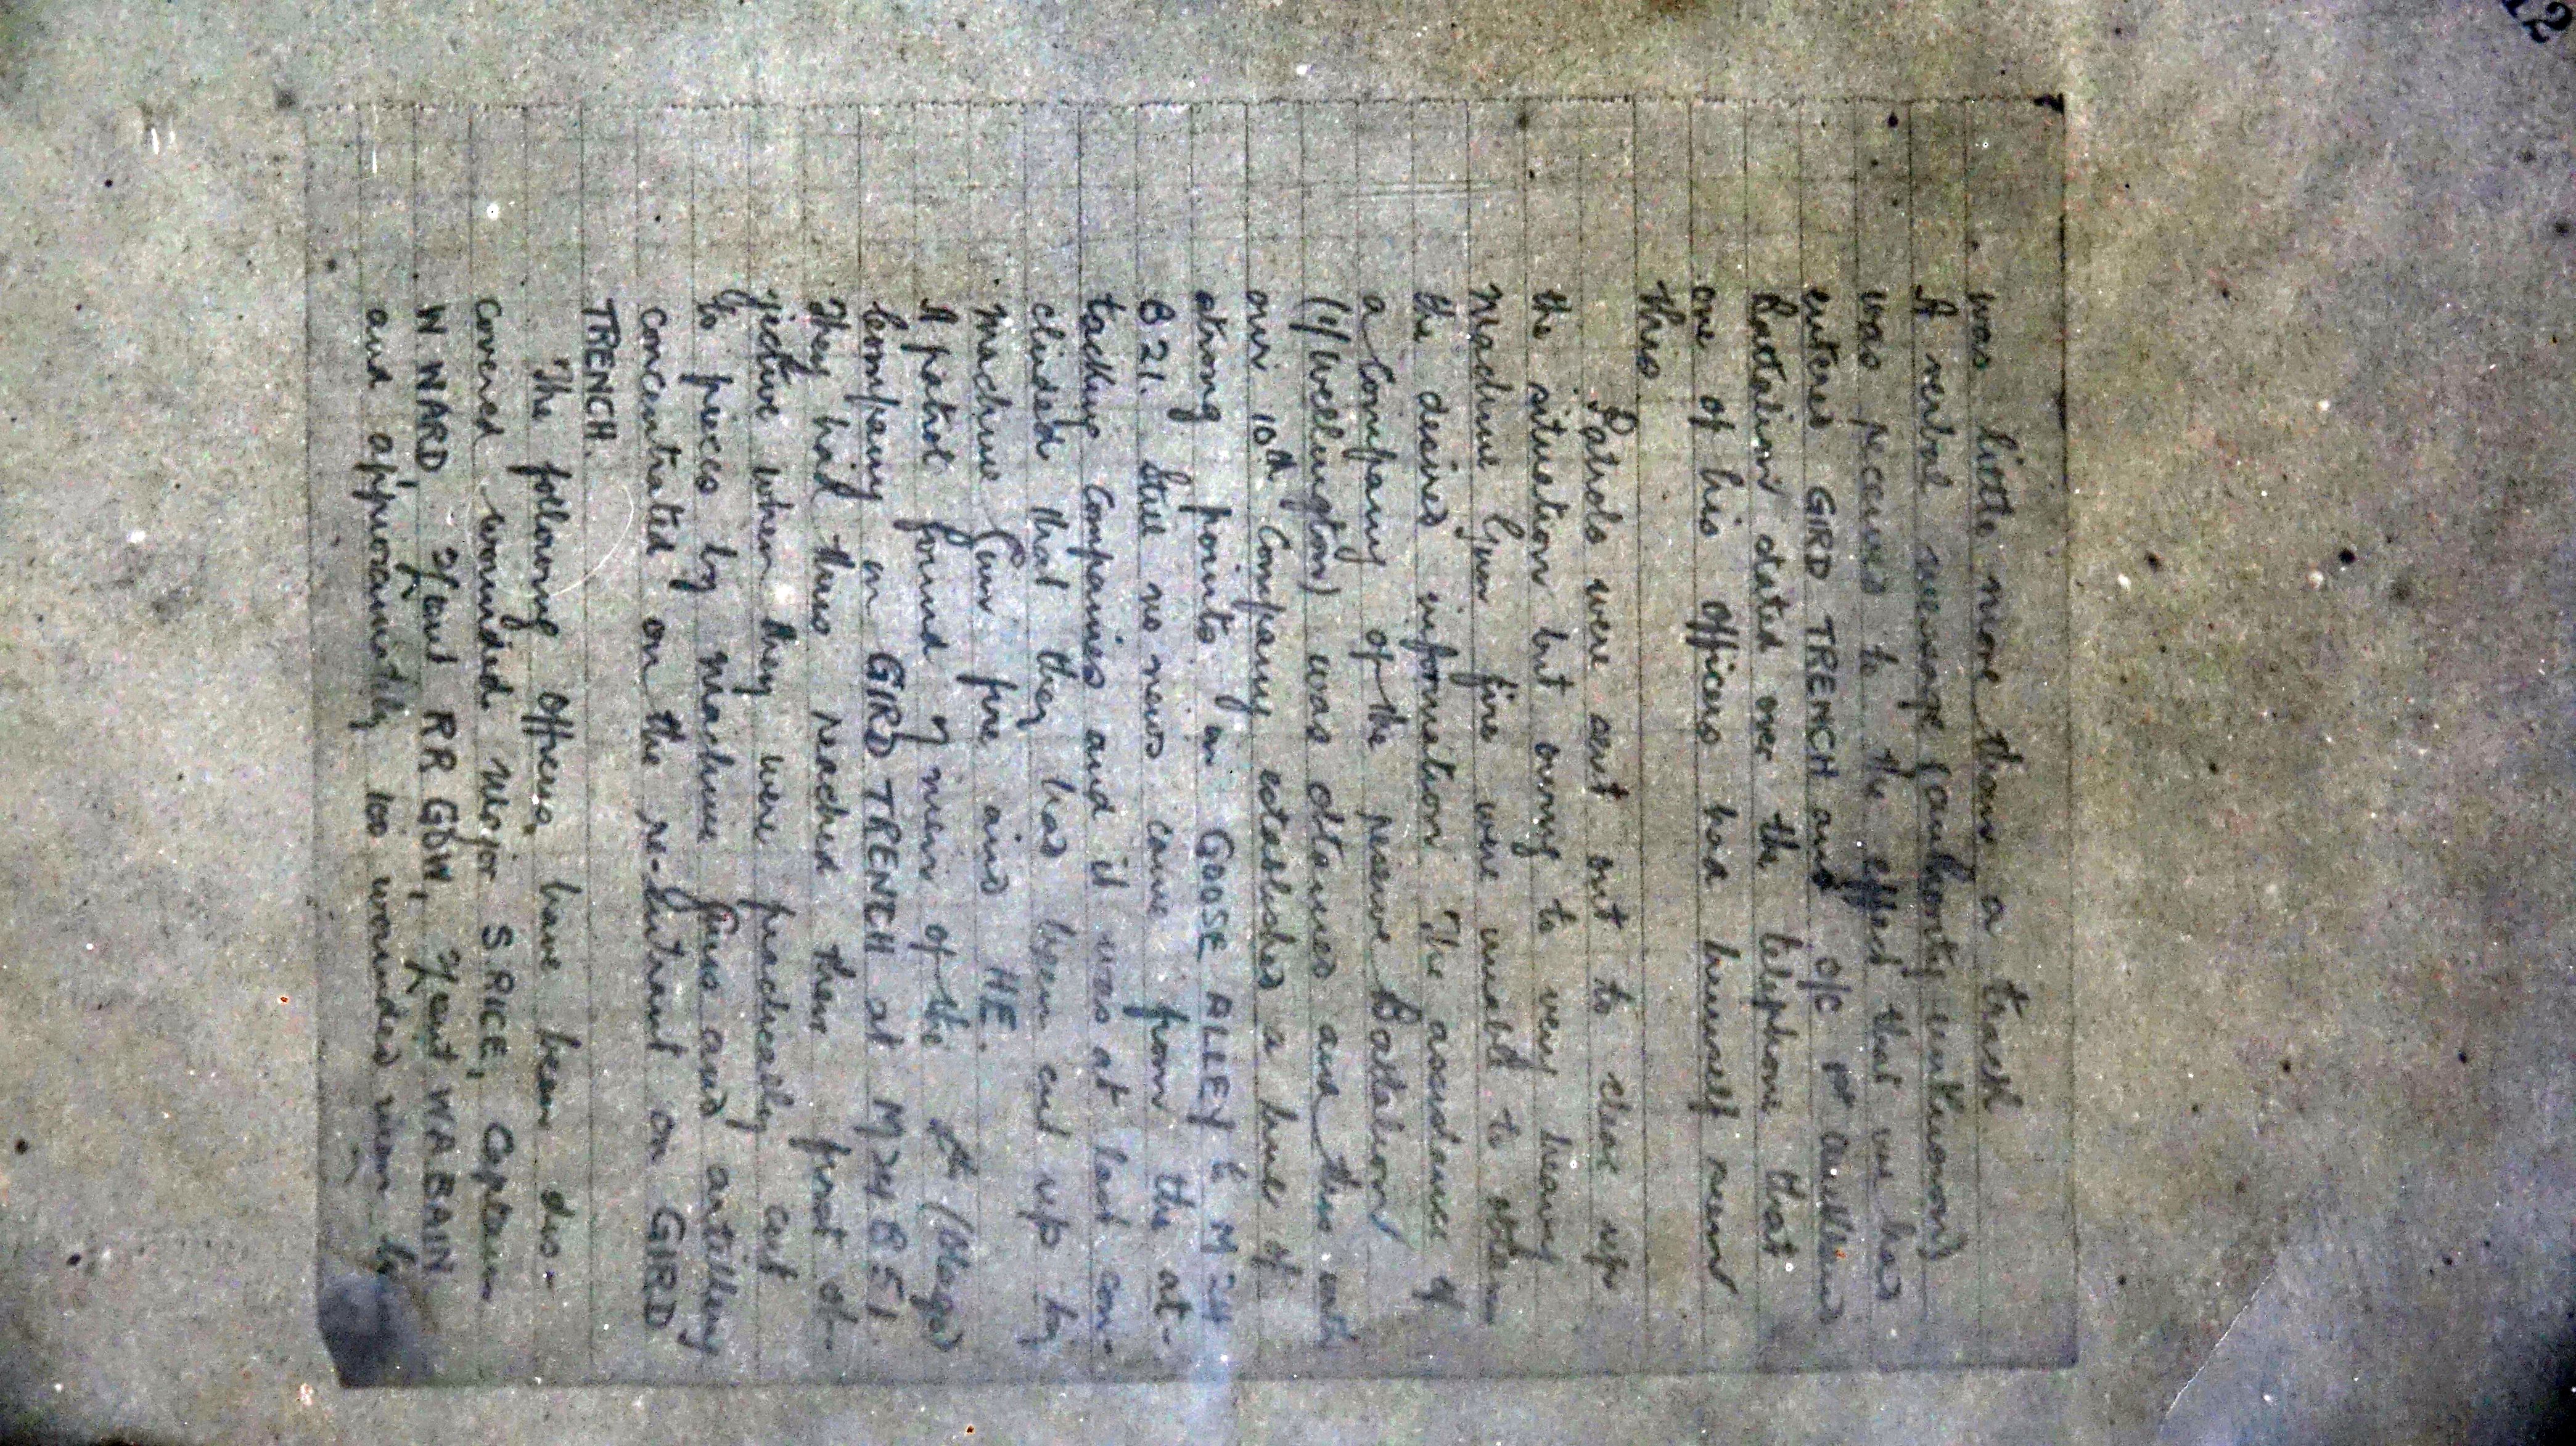 12
was little more than a track
A verbal message (authority unknown)
was received to the effect that we had
entered GIRD TRENCH and o/c 1st Auckland
Battalion stated over the telephone that
one of his officers had himself seen
this
Patrols were sent out to clear up
the situation but owing to very heavy
Machine Gun fire were unable to obtain
the desired information. The assistance of
a Company of the reserve Battalion
(1/Wellington) was obtained and this with
our 10th Company established a line of
strong points in GOOSE ALLEY & M 24
B 21. Still no news came from the at-
tacking Companies and it was at last con-
cluded that they had been cut up by
Machine Gun fire and HE.
A patrol found 7 men of the (Otago)
Company in GIRD TRENCH at M 24 B 51.
They had thus reached their first ob-
jective when they were practically cut
to pieces by machine guns and artillery
concentrated on the re-entrant on GIRD
TRENCH.
The following officers have been dis-
covered wounded Major S. RICE, Captain
W WARD, 2/Lieut RR GOW, 2/Lieut WA BAIN
and approximately 100 wounded men